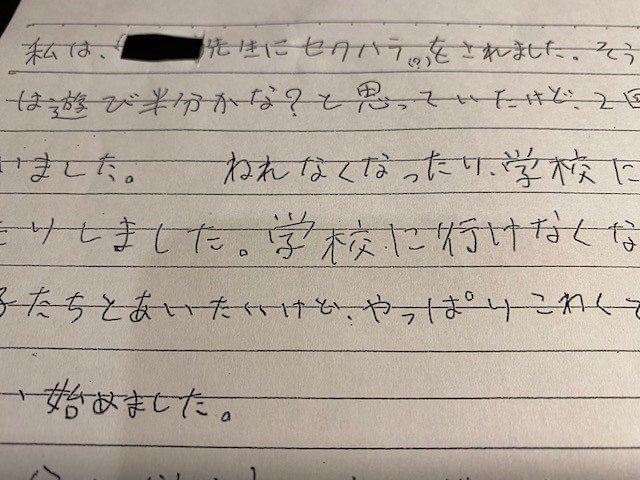 私は、先生にセクハラ(?)をされました。そう
は遊び半分かな？と思っていたけど、2回
いました。 ねれなくなったり、学校に
たりしました。学校に行けなくな
子たちとあいたいけど、やっぱりこわくて
、始めました。